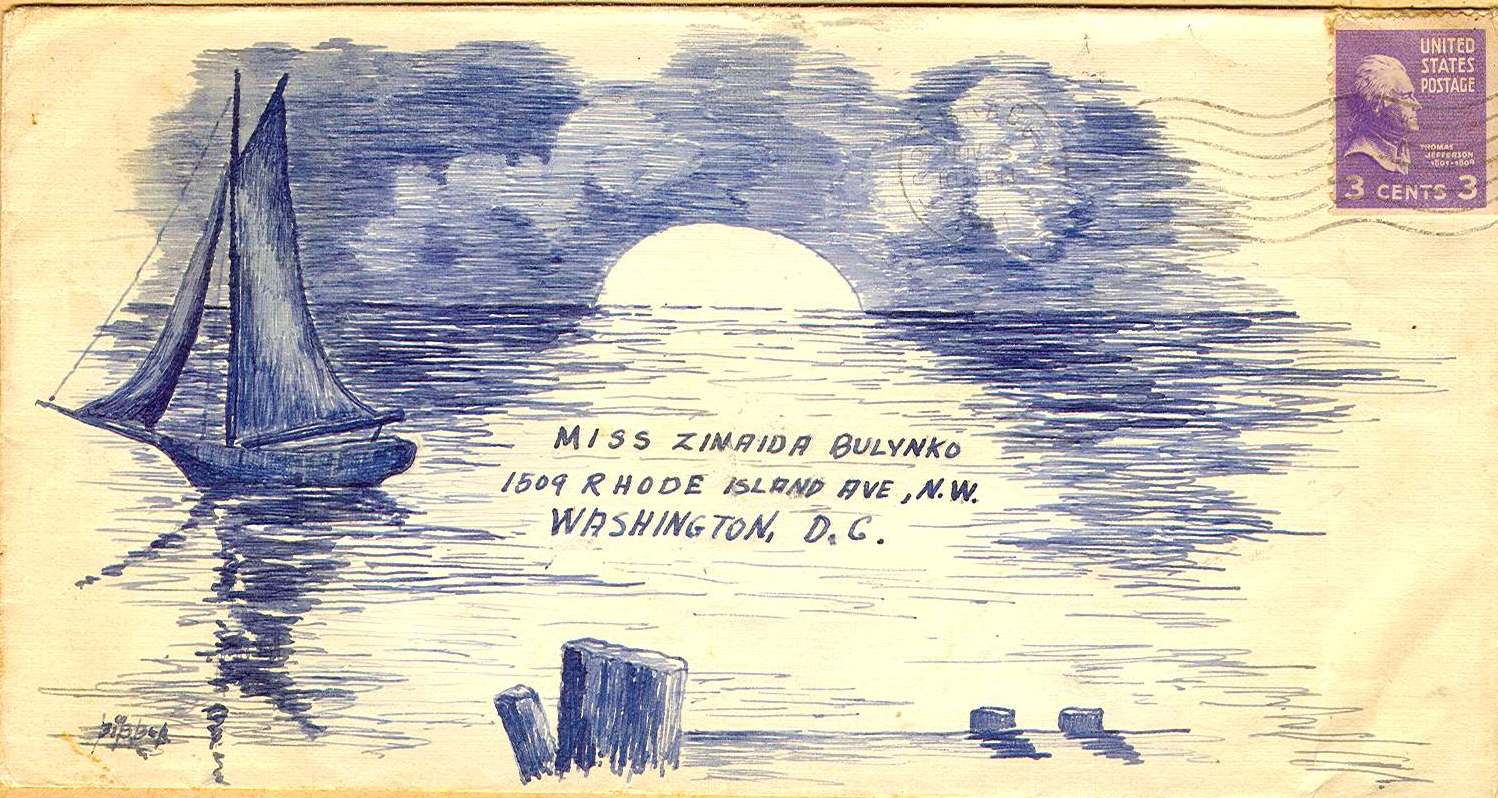 UNITED
STATES
POSTAGE
THOMAS
JEFFERSON
1801-1809
3 CENTS 3
MISS ZINAIDA BULYNKO
1509 RHODE ISLAND AVE, N.W.
WASHINGTON, D.C.